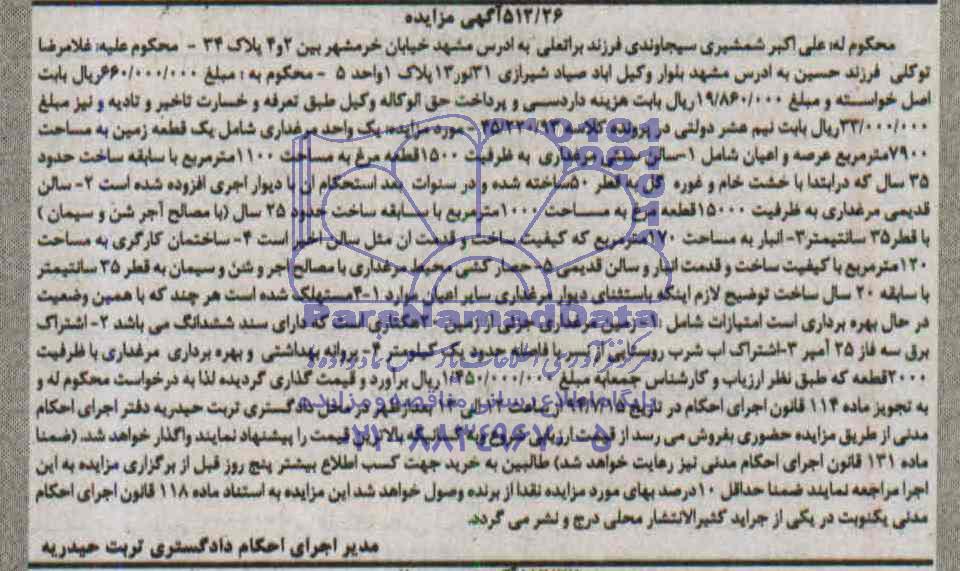 ۵۱۲/۲۶آگهی مزایده
محکوم له: علی اکبر شمشیری سیجاوندی فرزند براتعلی به ادرس مشهد خیابان خرمشهر بین ۲و۴ پلاک ۳۴ - محکوم علیه: غلامرضا
توکلی فرزند حسین به ادرس مشهد بلوار وکیل اباد صیاد شیرازی ۳۱نور۱۳پلاک ۱واحد ۵ - محکوم به : مبلغ ۶۶۰/۰۰۰/۰۰۰ریال بابت
اصل خواسته و مبلغ ۱۹/۸۶۰/۰۰۰ریال بابت هزینه دادرسی و پرداخت حق الوکاله وکیل طبق تعرفه و خسارت تاخیر و تادیه و نیز مبلغ
۳۳/۰۰۰/۰۰۰ریال بابت نیم عشر دولتی در پرونده کلاسه - مورد مزایده: یک واحد مرغداری شامل یک قطعه زمین به مساحت
۷۹۰۰مترمربع عرصه و اعیان شامل ۱-سالن سنتی مرغداری به ظرفیت ۱۵۰۰قطعه مرغ به مساحت ۱۱۰۰مترمربع با سابقه ساخت حدود
۳۵ سال که درابتدا با خشت خام و غوره گل به قطر ۵۰ساخته شده و در سنوات بعد استحکام ان با دیوار اجری افزوده شده است ۲- سالن
قدیمی مرغداری به ظرفیت ۱۵۰۰۰قطعه مرغ به مساحت ۱۰۰۰مترمربع با سابقه ساخت حدود ۲۵ سال (با مصالح آجر شن و سیمان )
با قطر۳۵ سانتیمتر۳- انبار به مساحت ۱۷۰مترمربع که کیفیت ساخت و قدمت ان مثل سالن اخیر است ۴- ساختمان کارگری به مساحت
۱۲۰مترمربع با کیفیت ساخت و قدمت انبار و سالن قدیمی ۵- حصار کشی محیط مرغداری با مصالح آجر و شن و سیمان به قطر ۳۵ سانتیمتر
با سابقه ۲۰ سال ساخت توضیح لازم اینکه باستثنای دیوار مرغداری سایر اعیان موارد ۱-۴مستهلک شده است هر چند که با همین وضعیت
در حال بهره برداری است امتیازات شامل :۱-زمین مرغداری جزئی از زمین ۲۰هکتاری است که دارای سند ششدانگ می باشد ۲- اشتراک
برق سه فاز ۲۵ آمپر ۳-اشتراک اب شرب روستایی از با فاصله حدود یک کیلومتر ۴- پروانه بهداشتی و بهره برداری مرغداری با ظرفیت
۲۰۰۰قطعه که طبق نظر ارزیاب و کارشناس جمعابه مبلغ ۱/۲۵۰/۰۰۰/۰۰۰ریال برآورد و قیمت گذاری گردیده لذا به درخواست محکوم له و
به تجویز ماده ۱۱۴ قانون اجرای احکام در تاریخ ۹۳/۷/۱۵ از ساعت ۱۲ الی ۱۳ بعدازظهر در محل دادگستری تربت حیدریه دفتر اجرای احکام
مدنی از طریق مزایده حضوری بفروش می رسد از قیمت ارزیابی شروع و به کسانیکه بالاترین قیمت را پیشنهاد نمایند واگذار خواهد شد. (ضمنا
ماده ۱۳۱ قانون اجرای احکام مدنی نیز رعایت خواهد شد) طالبین به خرید جهت کسب اطلاع بیشتر پنج روز قبل از برگزاری مزایده به این
اجرا مراجعه نمایند ضمنا حداقل ۱۰درصد بهای مورد مزایده نقدا از برنده وصول خواهد شد این مزایده به استناد ماده ۱۱۸ قانون اجرای احکام
مدنی یکنوبت در یکی از جراید کثیرالانتشار محلی درج و نشر می گردد.
مدیر اجرای احکام دادگستری تربت حیدریه
ParaNamadData
پایگاه اطلاع رسانی مناقصه و مزایده
۰۲۱-۸۸۳۴۹۶۷۰-۵